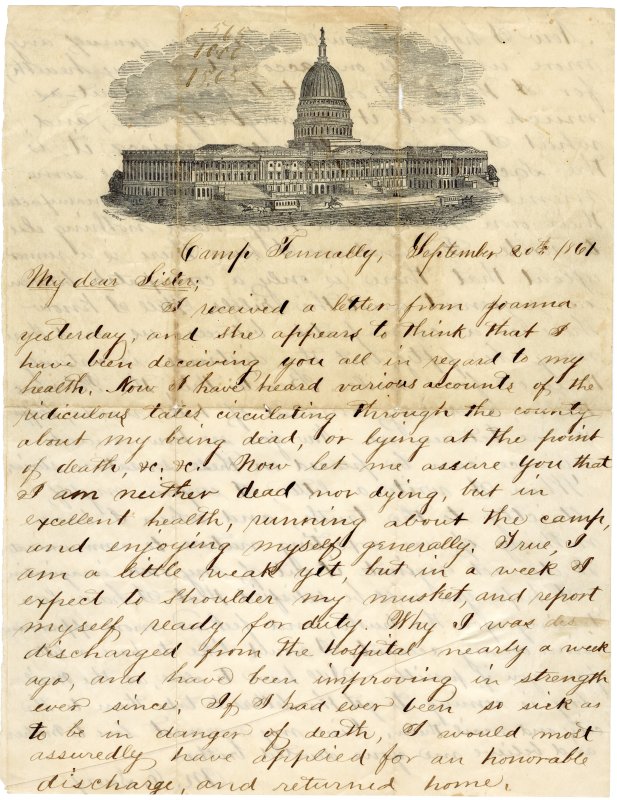 515
1000
1515
Camp Tennally, September 20th 1861
My dear Sister;
I received a letter from Joanna
yesterday, and she appears to think that I
have been deceiving you all in regard to my
health. Now I have heard various accounts of the
ridiculous tales circulating through the county
about my being dead, or lying at the point
of death, &c. &c. Now let me assure you that
I am neither dead nor dying, but in
excellent health, running about the camp,
and enjoying myself generally. True, I
am a little weak yet, but in a week I
expect to shoulder my musket, and report
myself ready for duty. Why I was
discharged from the Hospital nearly a week
ago, and have been improving in strength
ever since. If I had ever been so sick as
to be in danger of death, I would most
assuredly have applied for an honorable
discharge, and returned home.